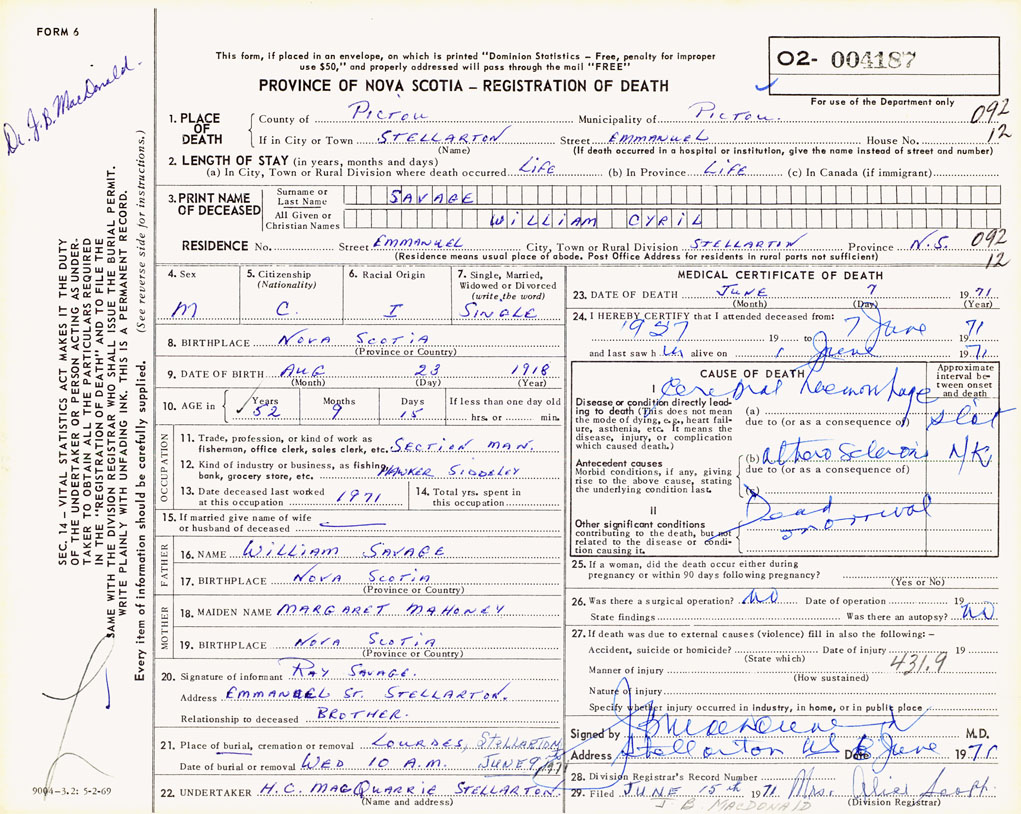 FORM 6
Dr. J. B. MacDonald.
This form, if placed in an envelope, on which is printed "Dominion Statistics – Free, penalty for improper
use $50," and properly addressed will pass through the mail "FREE"
02- 004187
PROVINCE OF NOVA SCOTIA – REGISTRATION OF DEATH
For use of the Department only
092
12
1. PLACE OF DEATH
County of PICTOU Municipality of PICTOU.
If in City or Town STELLARTON Street EMMANUEL House No.
(Name) (If death occurred in a hospital or institution, give the name instead of street and number)
2. LENGTH OF STAY (in years, months and days)
(a) In City, Town or Rural Division where death occurred LIFE (b) In Province LIFE (c) In Canada (if immigrant)
3. PRINT NAME OF DECEASED
Surname or Last Name SAVAGE
All Given or Christian Names WILLIAM CYRIL
RESIDENCE No. Street EMMANUEL City, Town or Rural Division STELLARTON Province N.S. 092
(Residence means usual place of abode. Post Office Address for residents in rural parts not sufficient) 12
SEC. 14 – VITAL STATISTICS ACT MAKES IT THE DUTY
OF THE UNDERTAKER OR PERSON ACTING AS UNDER-
TAKER TO OBTAIN ALL THE PARTICULARS REQUIRED
IN THE "REGISTRATION OF DEATH" AND TO FILE THE
SAME WITH THE DIVISION REGISTRAR WHO SHALL ISSUE THE BURIAL PERMIT.
WRITE PLAINLY WITH UNFADING INK. THIS IS A PERMANENT RECORD.
Every item of information should be carefully supplied. (See reverse side for instructions.)
4. Sex M
5. Citizenship (Nationality) C.
6. Racial Origin I
7. Single, Married, Widowed or Divorced (write the word) SINGLE
8. BIRTHPLACE NOVA SCOTIA
(Province or Country)
9. DATE OF BIRTH AUG 23 1918
(Month) (Day) (Year)
10. AGE in Years 52 Months 9 Days 15 If less than one day old
hrs. or min.
OCCUPATION
11. Trade, profession, or kind of work as
fisherman, office clerk, sales clerk, etc. SECTION MAN.
12. Kind of industry or business, as fishing,
bank, grocery store, etc. HAWKER SIDDELEY
13. Date deceased last worked
at this occupation 1971
14. Total yrs. spent in
this occupation
15. If married give name of wife
or husband of deceased
FATHER
16. NAME WILLIAM SAVAGE
17. BIRTHPLACE NOVA SCOTIA
(Province or Country)
MOTHER
18. MAIDEN NAME MARGARET MAHONEY
19. BIRTHPLACE NOVA SCOTIA
(Province or Country)
20. Signature of informant RAY SAVAGE.
Address EMMANUEL ST. STELLARTON.
Relationship to deceased BROTHER.
21. Place of burial, cremation or removal LOURDES, STELLARTON
Date of burial or removal WED 10 A.M. JUNE 9th 1971
22. UNDERTAKER H.C. MACQUARRIE STELLARTON.
(Name and address)
9004-3.2: 5-2-69
MEDICAL CERTIFICATE OF DEATH
23. DATE OF DEATH JUNE 7 1971
(Month) (Day) (Year)
24. I HEREBY CERTIFY that I attended deceased from:
1957 19 to 7 June 1971
and last saw him alive on 1 June 1971
CAUSE OF DEATH
Approximate interval between onset and death
I Cerebral haemorrhage
Disease or condition directly leading to death (This does not mean the mode of dying, e.g., heart failure, asthenia, etc. It means the disease, injury, or complication which caused death.)
(a)
due to (or as a consequence of)
(b) atherosclerosis N/K
Antecedent causes
Morbid conditions, if any, giving rise to the above cause, stating the underlying condition last.
due to (or as a consequence of)
(c)
II Dead on arrival
Other significant conditions
contributing to the death, but not related to the disease or condition causing it.
25. If a woman, did the death occur either during
pregnancy or within 90 days following pregnancy?
(Yes or No)
26. Was there a surgical operation? NO Date of operation 19
State findings Was there an autopsy? NO
27. If death was due to external causes (violence) fill in also the following: –
Accident, suicide or homicide? Date of injury 19
(State which) 431.9
Manner of injury (How sustained)
Nature of injury
Specify whether injury occurred in industry, in home, or in public place
Signed by M.D.
Address Stellarton NS Date 8 June 1971
28. Division Registrar's Record Number
29. Filed JUNE 15th 1971 Mrs. Alice Scott
(Division Registrar)
J B. MACDONALD